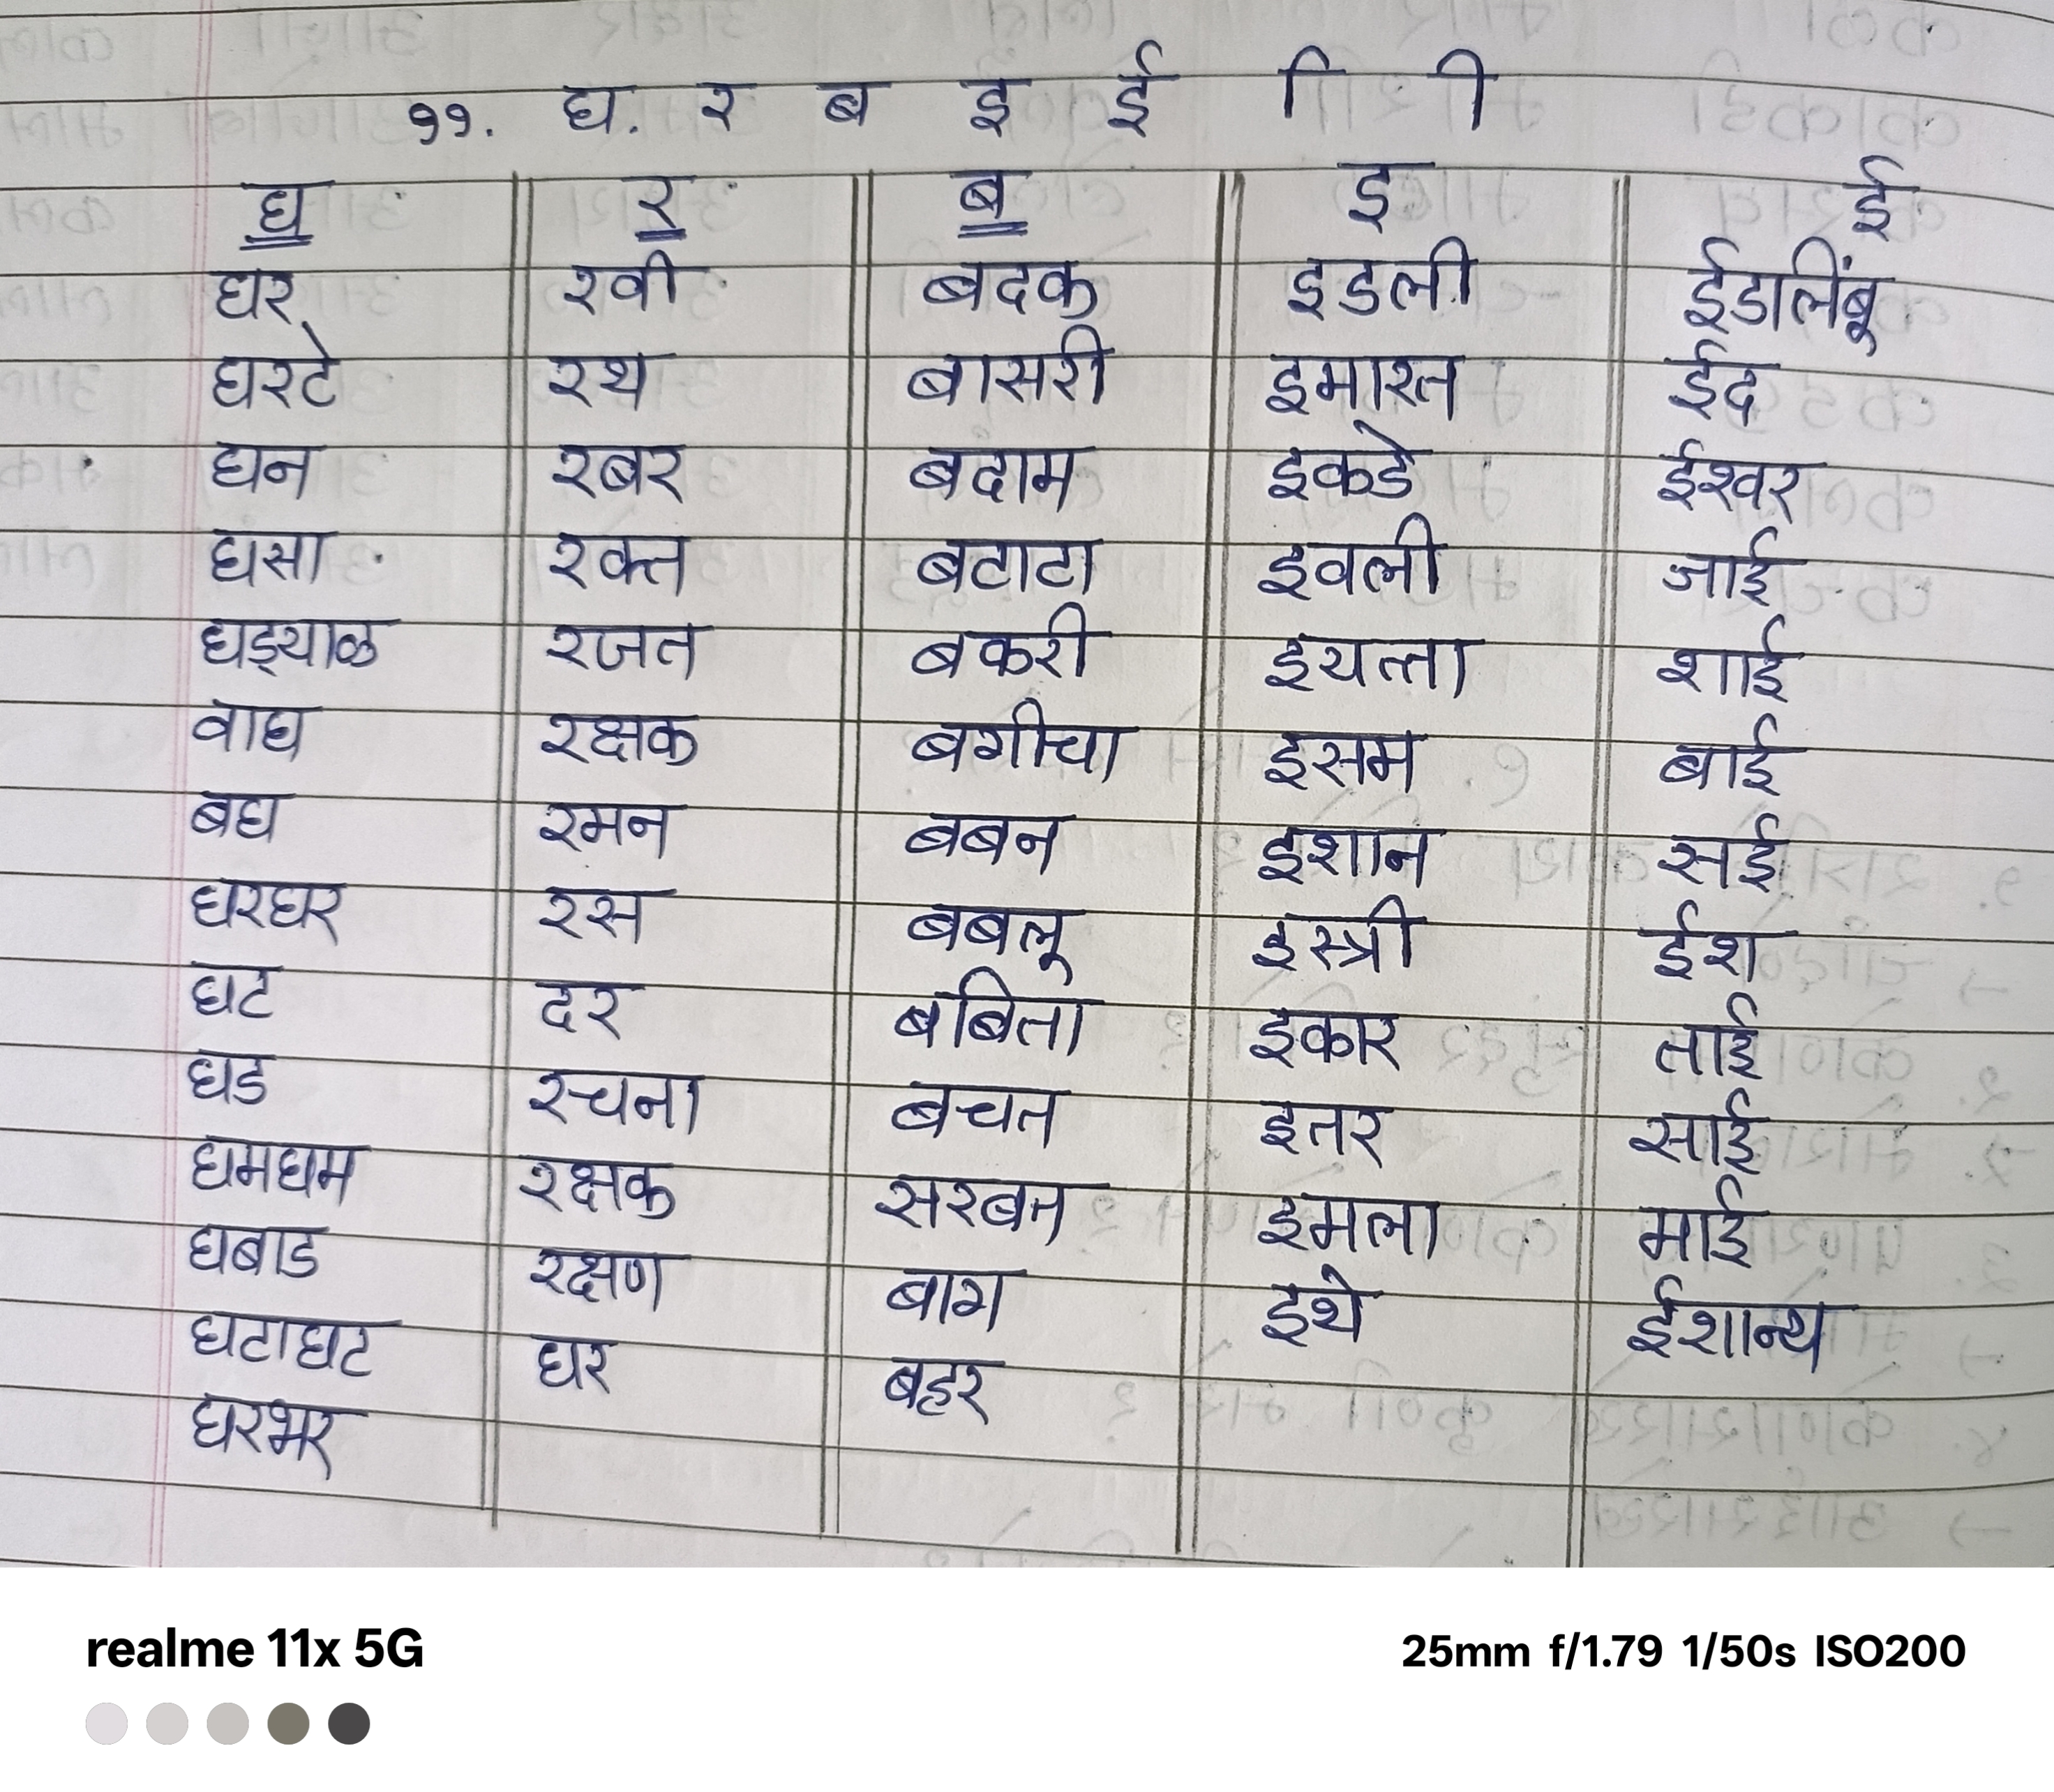 ११. घ. र ब इ ई ि ी
घ र ब इ ई
घर रवी बदक इडली ईडालिंबू
घरटे रथ बासरी इमारत ईद
घन रबर बदाम इकडे ईश्वर
घसा रक्त बटाटा इवली जाई
घड्याळ रजत बकरी इयत्ता शाई
वाघ रक्षक बगीचा इसम बाई
बघ रमन बबन इशान सई
घरघर रस बबलू इस्त्री ईश
घट दर बबिता इकार ताई
घड रचना बचत इतर साई
घमघम रक्षक सरबत इमला माई
घबाड रक्षण बाग इथे ईशान्य
घटाघट घर बहर
घरभर
realme 11x 5G 25mm f/1.79 1/50s ISO200